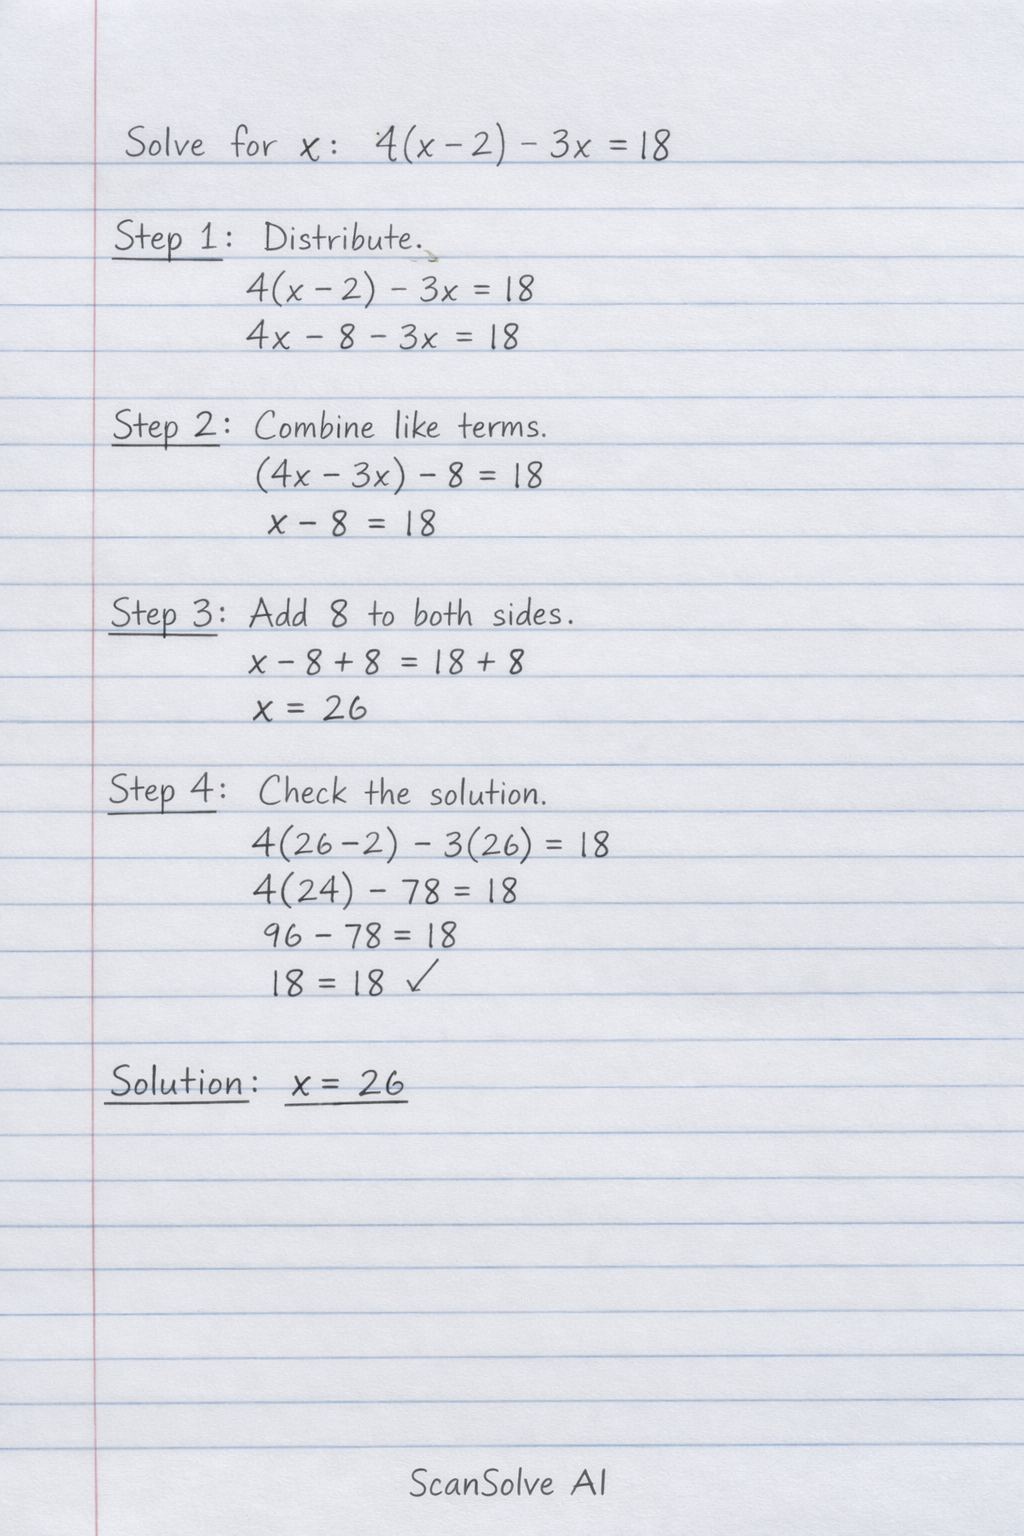 Solve for x: 4(x - 2) - 3x = 18
Step 1: Distribute.
4(x - 2) - 3x = 18
4x - 8 - 3x = 18
Step 2: Combine like terms.
(4x - 3x) - 8 = 18
x - 8 = 18
Step 3: Add 8 to both sides.
x - 8 + 8 = 18 + 8
x = 26
Step 4: Check the solution.
4(26 - 2) - 3(26) = 18
4(24) - 78 = 18
96 - 78 = 18
18 = 18 ✓
Solution: x = 26
ScanSolve AI